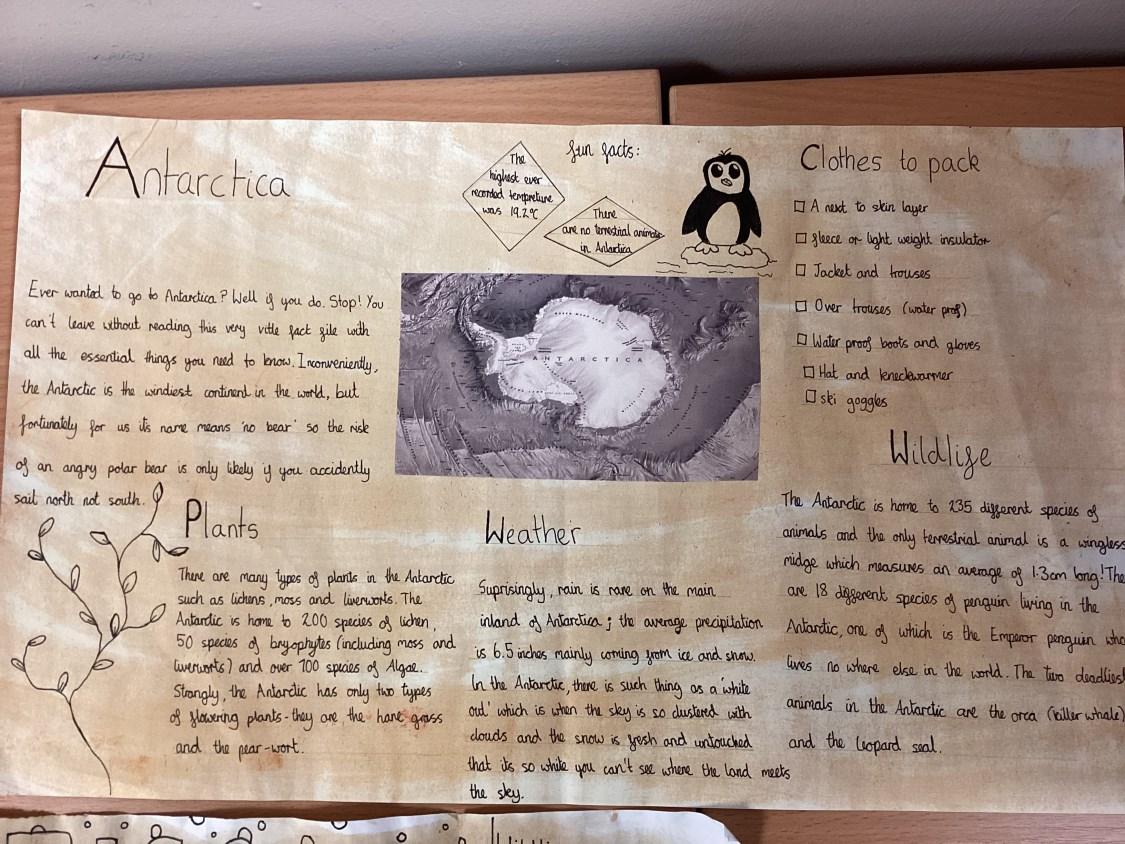 Antarctica
Ever wanted to go to Antarctica? Well if you do. Stop! You
can't leave without reading this very vitle fact file with
all the essential things you need to know. Inconveniently,
the Antarctic is the windiest continent in the world, but
fortunately for us its name means 'no bear' so the risk
of an angry polar bear is only likely if you accidently
sail north not south.
fun facts:
The
highest ever
recorded tempreture
was 19.2°C
There
are no terrestrial animals
in Antarctica
ANTARCTICA
Clothes to pack
A next to skin layer
fleece or light weight insulator
Jacket and trouses
Over trouses (water prof)
Water proof boots and gloves
Hat and kneckwarmer
ski goggles
Plants
There are many types of plants in the Antarctic
such as lichens, moss and liverworts. The
Antarctic is home to 200 species of lichen,
50 species of bryophytes (including moss and
liverworts) and over 700 species of Algae.
Strongly, the Antarctic has only two types
of flowering plants - they are the hare grass
and the pear-wort.
Weather
Suprisingly, rain is rare on the main
inland of Antarctica; the average precipitation
is 6.5 inches mainly coming from ice and snow.
In the Antarctic, there is such thing as a 'white
out' which is when the sky is so clustered with
clouds and the snow is fresh and untouched
that its so white you can't see where the land meets
the sky.
Wildlife
The Antarctic is home to 235 different species of
animals and the only terrestrial animal is a wingless
midge which measures an average of 1.3cm long! The
are 18 different species of penguin living in the
Antarctic, one of which is the Emperor penguin who
lives no where else in the world. The two deadliest
animals in the Antarctic are the orca (killer whale)
and the leopard seal.